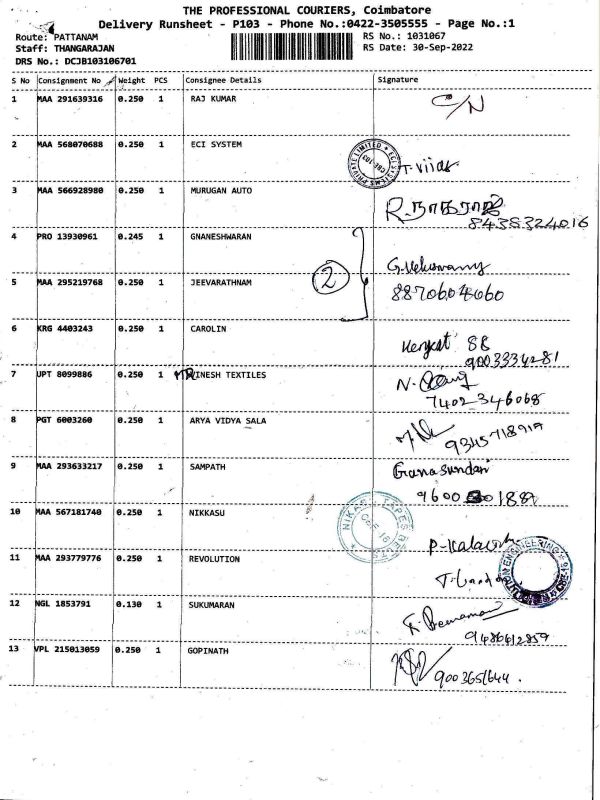 THE PROFESSIONAL COURIERS, Coimbatore
Delivery Runsheet - P103 - Phone No.:0422-3505555 - Page No.:1
Route: PATTANAM
RS No.: 1031067
Staff: THANGARAJAN
RS Date: 30-Sep-2022
DRS No.: DCJB103106701
S No Consignment No Weight PCS Consignee Details Signature
1 MAA 291639316 0.250 1 RAJ KUMAR C/N
2 MAA 568070688 0.250 1 ECI SYSTEM
3 MAA 566928980 0.250 1 MURUGAN AUTO R. நாகராஜ்
8438324016
4 PRO 13930961 0.245 1 GNANESHWARAN
2
5 MAA 295219768 0.250 1 JEEVARATHNAM 8870604060
6 KRG 4403243 0.250 1 CAROLIN
9003334281
7 UPT 8099886 0.250 1 INESH TEXTILES
7402346068
8 PGT 6003260 0.250 1 ARYA VIDYA SALA
9345718919
9 MAA 293633217 0.250 1 SAMPATH Gana Sundari
10 MAA 567181740 0.250 1 NIKKASU
11 MAA 293779776 0.250 1 REVOLUTION
12 NGL 1853791 0.130 1 SUKUMARAN
9486612859
13 VPL 215013059 0.250 1 GOPINATH
9003651644.